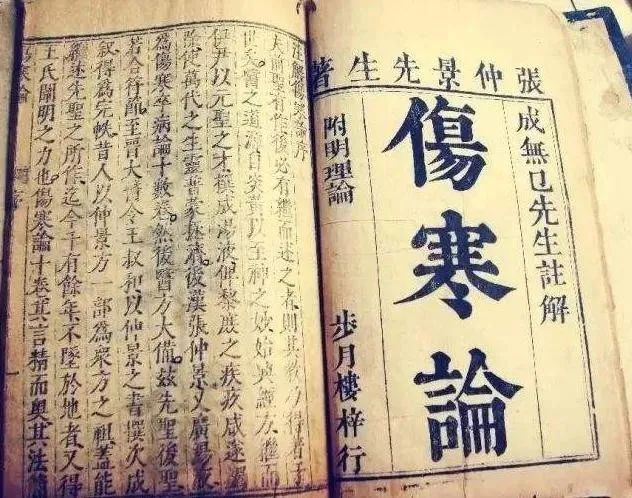 張仲景先生著
成無已先生註解
傷寒論
附明理論
步月樓梓行
註解傷寒論序
夫前聖有作後必有繼而述之者則其教乃得著于
世矣醫之道源自炎黃以至神之妙始興經方繼而
伊尹以元聖之才撰成湯液俾黎庶之疾疢咸遂蠲
除使萬代之生靈普蒙拯濟後漢張仲景又廣湯液
為傷寒卒病論十數卷然後醫方大備茲先聖後聖
若合符節至晉太醫令王叔和以仲景之書撰次成
敘得為完帙昔人以仲景方一部為眾方之祖蓋能
繼述先聖之所作迄今千有餘年不墜於地者又得
王氏闡明之力也傷寒論十卷其言精而奧其法簡
傷寒論